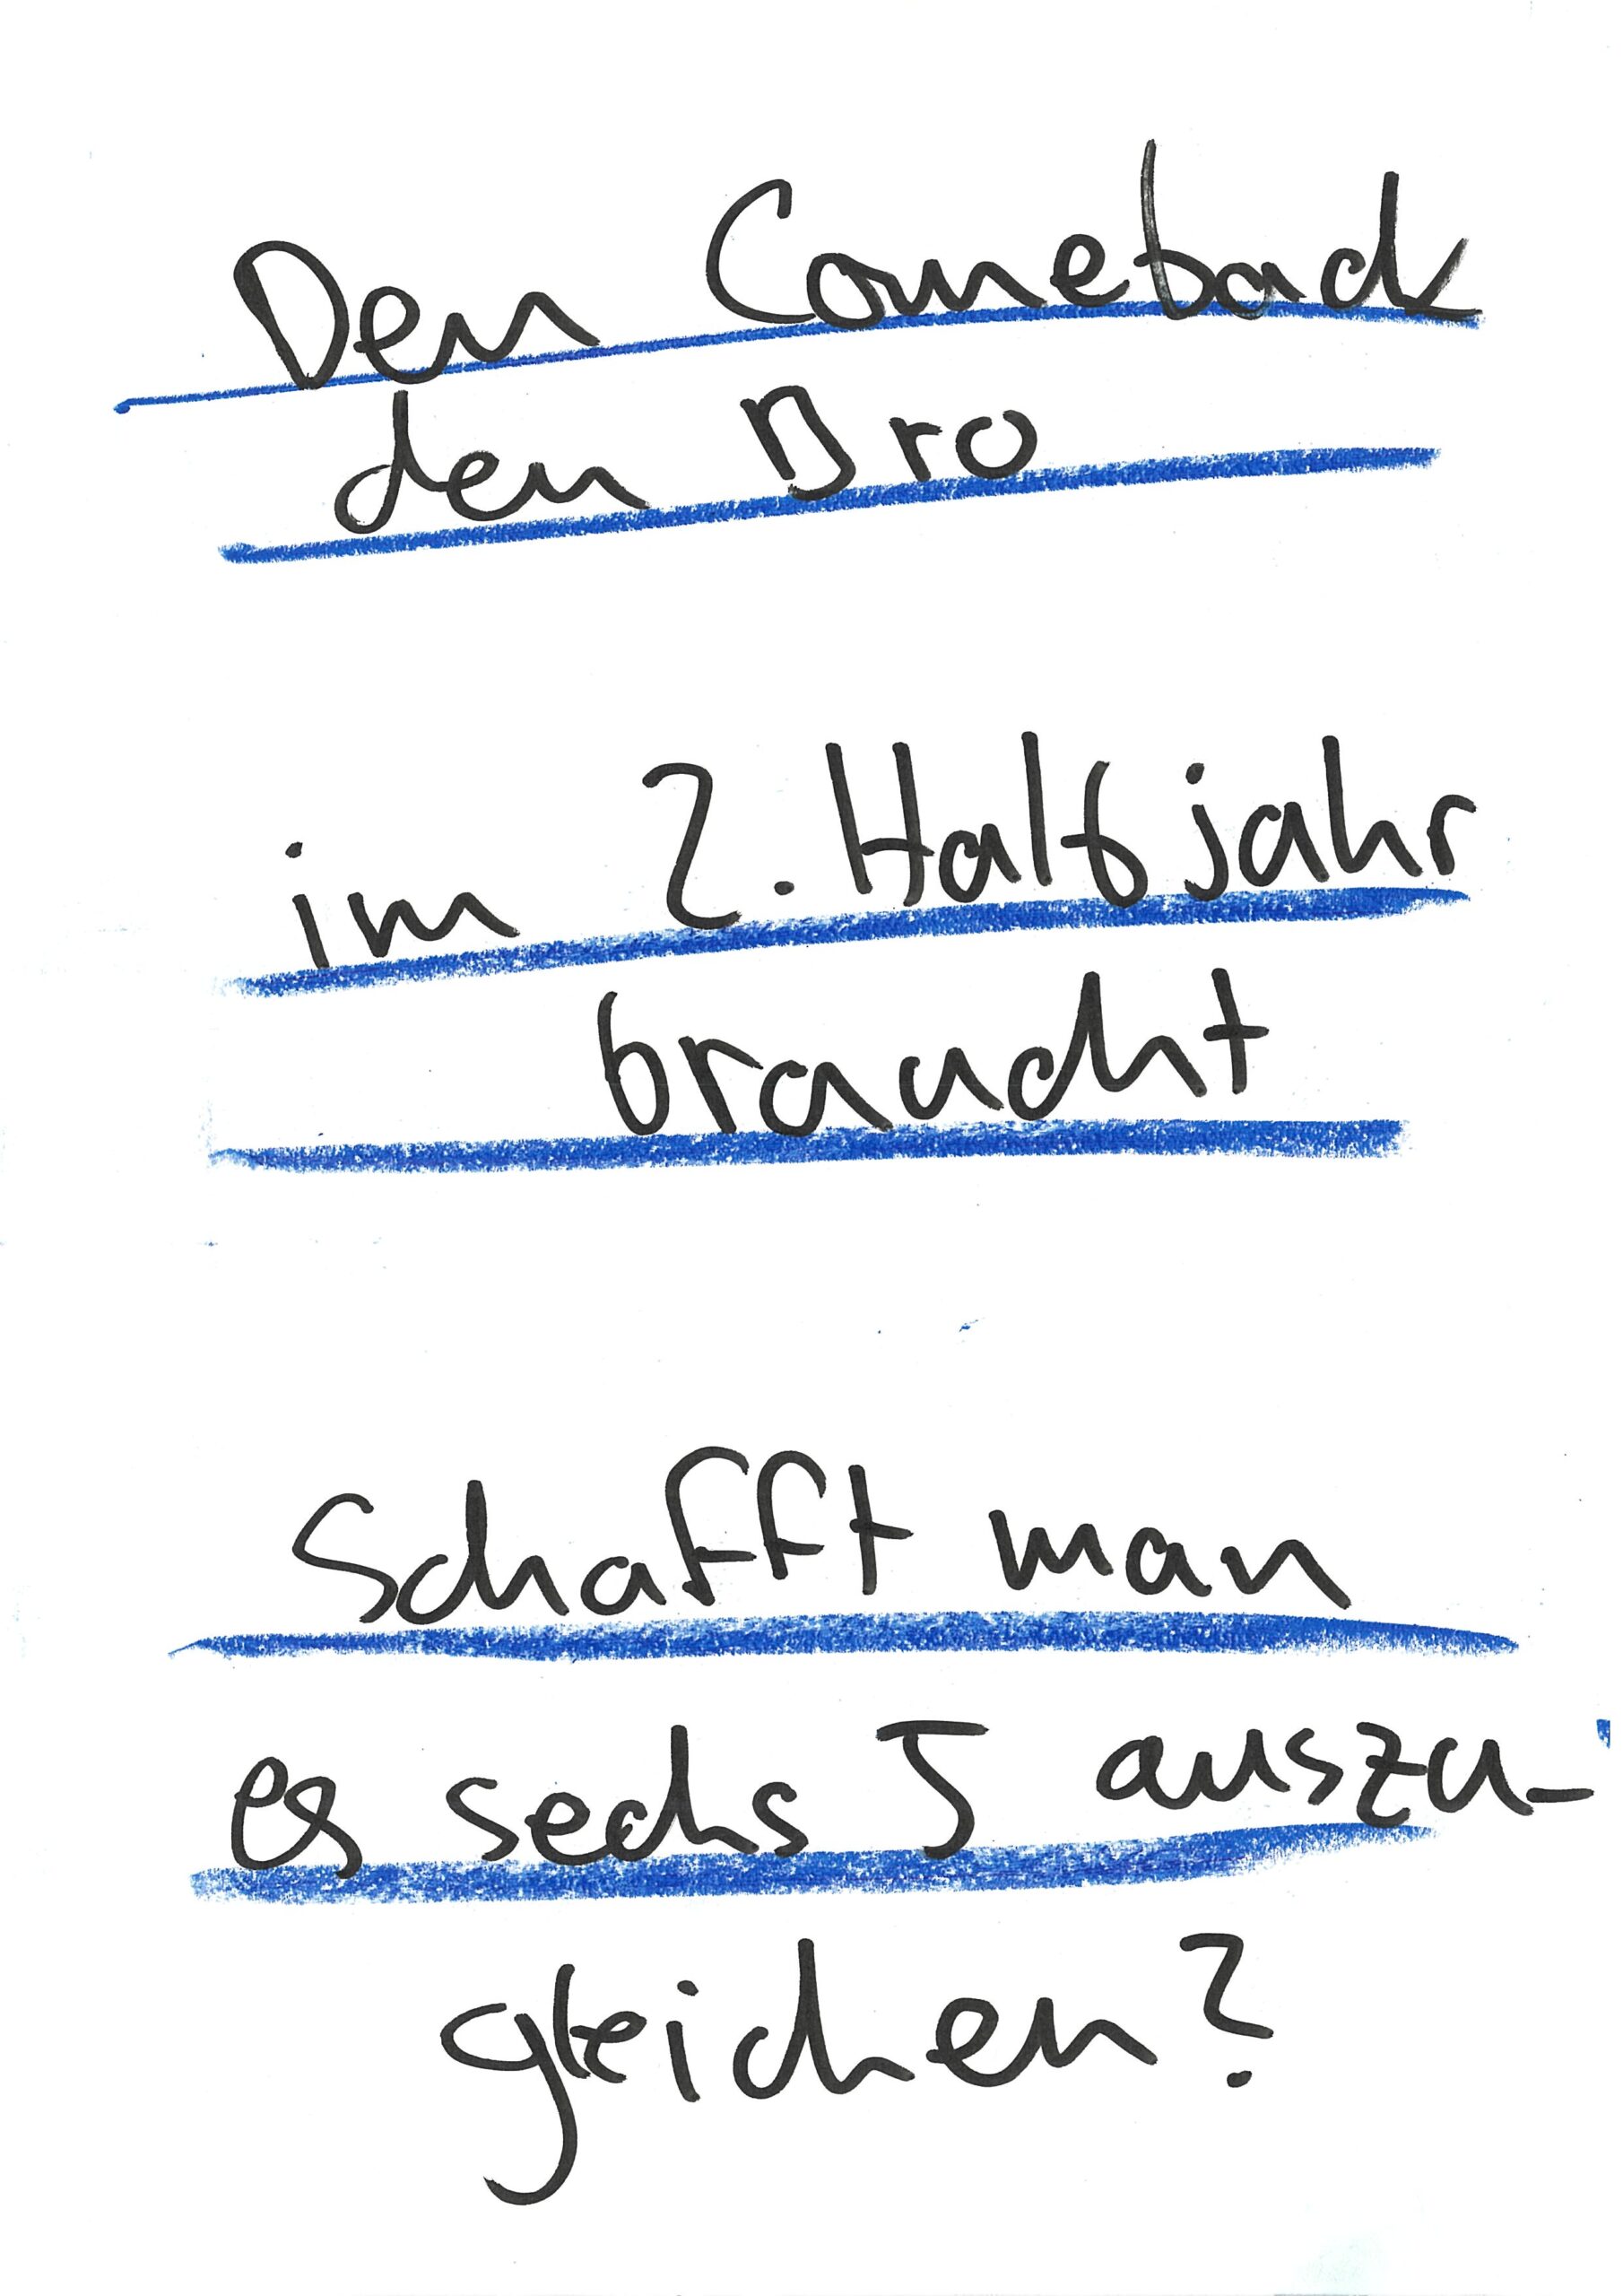 Den Comeback
den Bro
im 2. Halbjahr
braucht
Schafft man
es sechs 5 auszu-
gleichen?